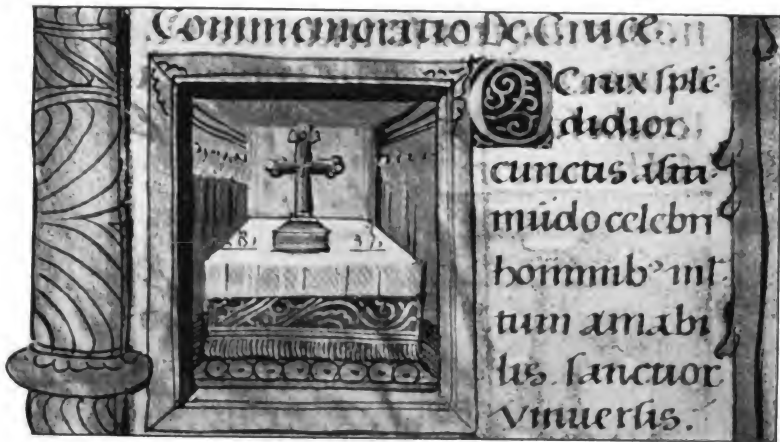 Commemoratio De Cruce
O Crux splē
didior
cunctis
mūdo celebri
tum amabi
lis. sanctior
vniuersis.